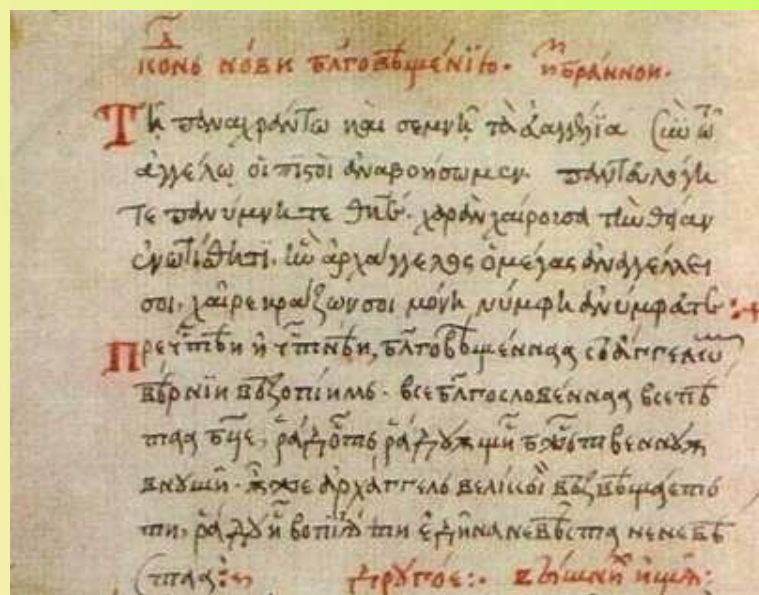 конь нови бл҃говѣщенїю. избранной.
Τῆ παναχράντω καὶ σεμνῆ τὰ ἀαγγέϊα σὺν
ἀγγέλω οἱ πϊςοὶ ἀναβοήσωμεν. πανευλογη
τε πανύμνητε θητѣ. χαρὰν χαίροισα τὴν θείαν
ἐνωτίθητϊ. ἣν ἀρχάγγελος ὁ μέγας ἀναγέλλει
σοι. χαῖρε κράζων σοι μόνη νύμφη ἀνύμφευτε :+
Пречⷭ҇тѣи и҆ чⷭ҇тнѣи, бл҃говѣщеннаѧ съ а҆ггелѡⷨ
вѣрнїи възопїимь. все бл҃гословеннаѧ всепѣ
таѧ бц҃е, ра́дость ра́дꙋѫщиⷭ҇ бжⷭ҇твенаѫѫ
внꙋши. ѫ҆же арха́ггель великои възвѣщаеть
ти, ра́дꙋиⷭ҇ вопїѧ ти е҆дина невѣста неневѣ
стнаѧ : дрꙋгое :